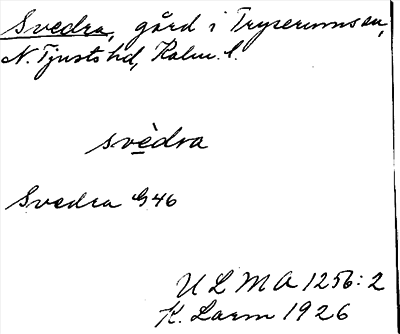 Svedra, gård i Tryserums sn,
N. Tjusts hd, Kalm. l.
svèdra
Svedra G46
ULMA 1256:2
K. Laem 1926